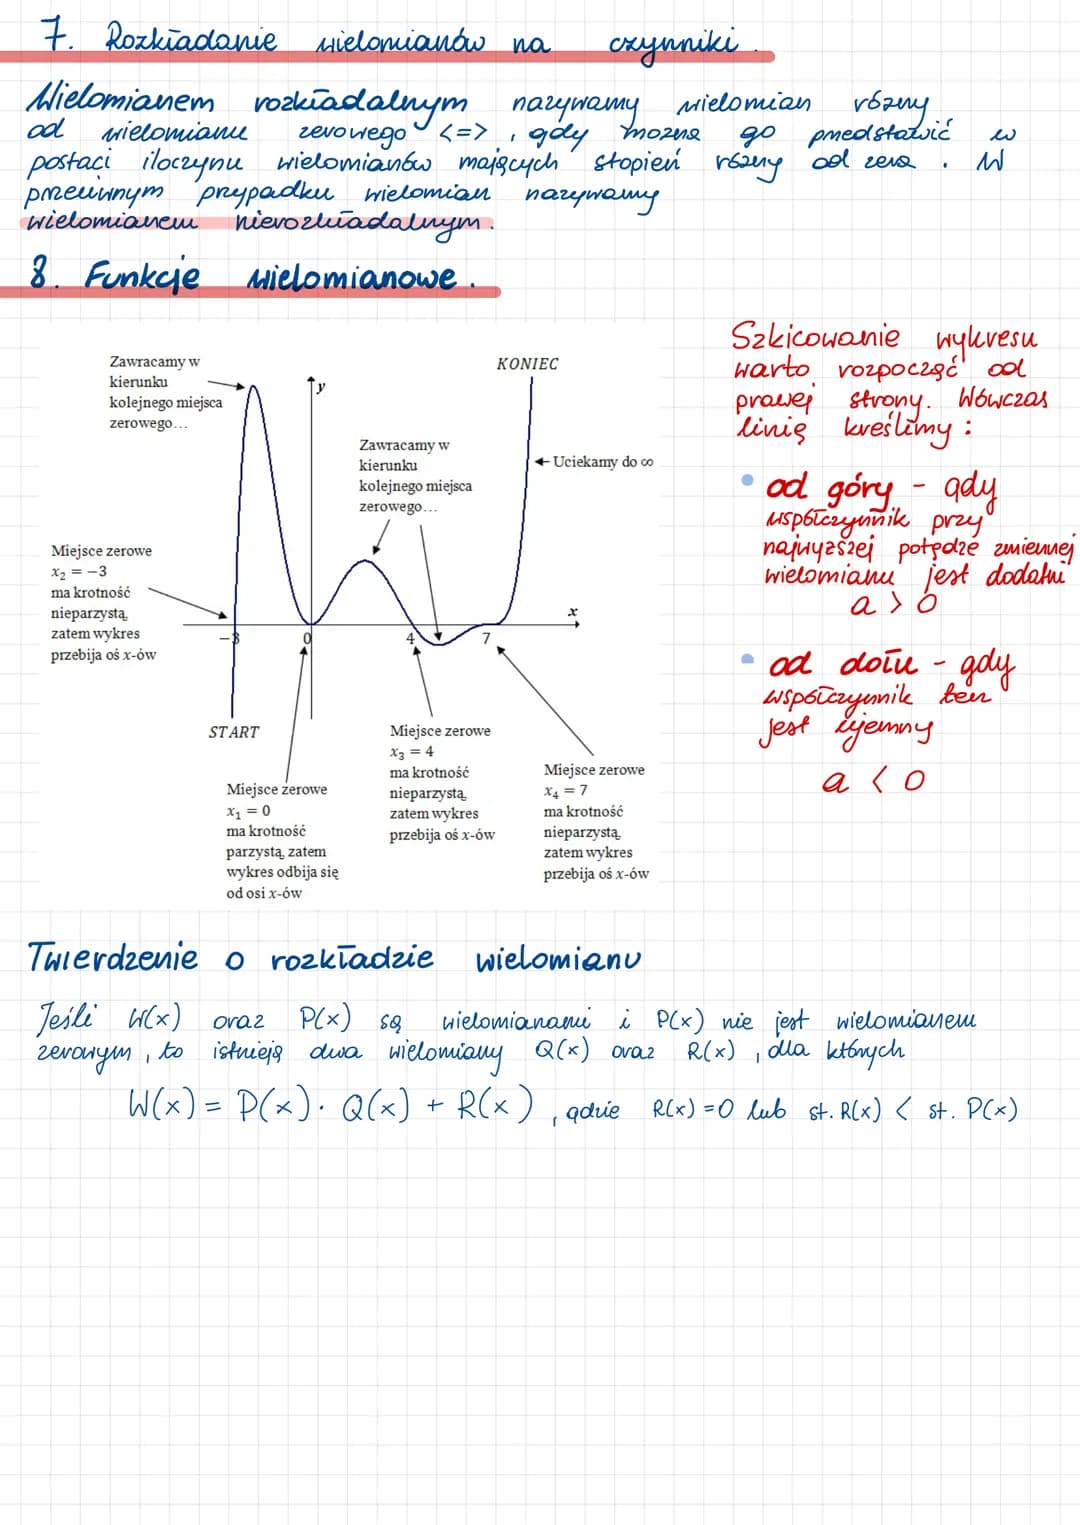 7. Rozkładanie wielomianów na czynniki.
Wielomianem rozkładalnym nazywamy wielomian różny
od wielomianu zerowego <=>, gdy można go przedstawić w
postaci iloczynu wielomianów mających stopień różny od zera. W
przeciwnym przypadku wielomian nazywamy
wielomianem nierozkładalnym.
8. Funkcje wielomianowe.
Zawracamy w
kierunku
kolejnego miejsca
zerowego...
y
KONIEC
Zawracamy w
kierunku
kolejnego miejsca
zerowego...
Uciekamy do ∞
Miejsce zerowe
x₂ = −3
ma krotność
nieparzystą,
zatem wykres
przebija oś x-ów
−3
0
4
7
x
START
Miejsce zerowe
x₁ = 0
ma krotność
parzystą, zatem
wykres odbija się
od osi x-ów
Miejsce zerowe
x₃ = 4
ma krotność
nieparzystą,
zatem wykres
przebija oś x-ów
Miejsce zerowe
x₄ = 7
ma krotność
nieparzystą,
zatem wykres
przebija oś x-ów
Szkicowanie wykresu
warto rozpocząć od
prawej strony. Wówczas
linię kreślimy:
• od góry - gdy
współczynnik przy
najwyższej potędze zmiennej
wielomianu jest dodatni
a > 0
• od dołu - gdy
współczynnik ten
jest ujemny
a < 0
Twierdzenie o rozkładzie wielomianu
Jeśli W(x) oraz P(x) są wielomianami i P(x) nie jest wielomianem
zerowym, to istnieją dwa wielomiany Q(x) oraz R(x), dla których
W(x) = P(x) · Q(x) + R(x), gdzie R(x) = 0 lub st. R(x) < st. P(x)